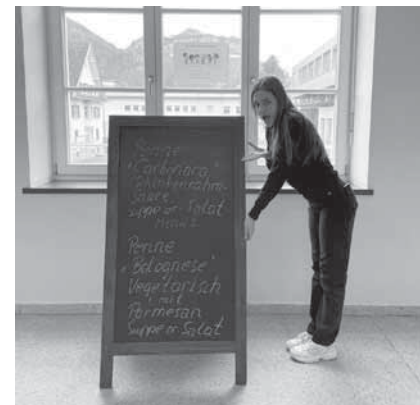 Penne
"Carbonara"
Schinkenrahm-
sauce
Suppe or Salat
Menü 2
Penne
"Bolognese"
Vegetarisch
mit
Parmesan
Suppe or Salat